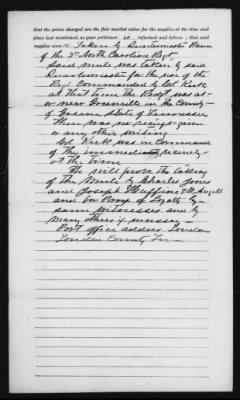 that the prices charged are the fair market value for the supplies at the time and
place last mentioned, as your petitioner is informed and believes; that said
supplies were (8) Taken by Quartermaster
of the 2d North Carolina Regt.
Said mule was taken by said
Quartermaster for the use of the
Regt Commanded by Col Kirk
at that time the Regt was at
or near Greenville in the County
of Greene State of Tennessee
There was no receipt given
or any other writing
Col Kirk was in Command
of the immediate vicinity
at the time
He will prove the taking
of the Mule by Charles Jones
and Joseph Huffine
and for Proof of Loyalty by
same witnesses and by
many others if necessary
Post office address Loudon
Loudon County Tenn